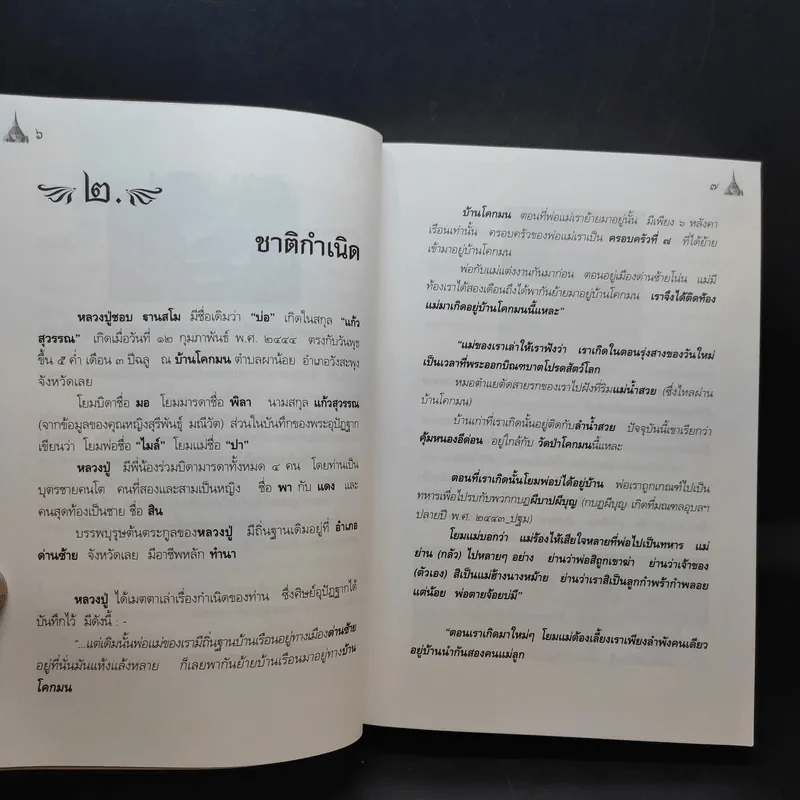 ๖
๒.
ชาติกำเนิด
หลวงปู่ชอบ ฐานสโม มีชื่อเดิมว่า "บ่อ" เกิดในสกุล "แก้ว
สุวรรณ" เกิดเมื่อวันที่ ๑๒ กุมภาพันธ์ พ.ศ. ๒๔๔๔ ตรงกับวันพุธ
ขึ้น ๕ ค่ำ เดือน ๓ ปีฉลู ณ บ้านโคกมน ตำบลผาน้อย อำเภอวังสะพุง
จังหวัดเลย
โยมบิดาชื่อ มอ โยมมารดาชื่อ พิลา นามสกุล แก้วสุวรรณ
(จากข้อมูลของคุณหญิงสุรีพันธุ์ มณีวัต) ส่วนในบันทึกของพระอุปัฏฐาก
เขียนว่า โยมพ่อชื่อ "ไมล์" โยมแม่ชื่อ "ปา"
หลวงปู่ มีพี่น้องร่วมบิดามารดาทั้งหมด ๔ คน โดยท่านเป็น
บุตรชายคนโต คนที่สองและสามเป็นหญิง ชื่อ พา กับ แดง และ
คนสุดท้องเป็นชาย ชื่อ สิน
บรรพบุรุษต้นตระกูลของหลวงปู่ มีถิ่นฐานเดิมอยู่ที่ อำเภอ
ด่านซ้าย จังหวัดเลย มีอาชีพหลัก ทำนา
หลวงปู่ ได้เมตตาเล่าเรื่องกำเนิดของท่าน ซึ่งศิษย์อุปัฏฐากได้
บันทึกไว้ มีดังนี้ : -
"...แต่เดิมนั้นพ่อแม่ของเรามีถิ่นฐานบ้านเรือนอยู่ทางเมืองด่านซ้าย
อยู่ที่นั่นมันแห้งแล้งหลาย ก็เลยพากันย้ายบ้านเรือนมาอยู่ทางบ้าน
โคกมน
๗
บ้านโคกมน ตอนที่พ่อแม่เราย้ายมาอยู่นั้น มีเพียง ๖ หลังคา
เรือนเท่านั้น ครอบครัวของพ่อแม่เราเป็น ครอบครัวที่ ๗ ที่ได้ย้าย
เข้ามาอยู่บ้านโคกมน
พ่อกับแม่แต่งงานกันมาก่อน ตอนอยู่เมืองด่านซ้ายโน่น แม่มี
ท้องเราได้สองเดือนถึงได้พากันย้ายมาอยู่บ้านโคกมน เราจึงได้ติดท้อง
แม่มาเกิดอยู่บ้านโคกมนนี้แหละ"
"แม่ของเราเล่าให้เราฟังว่า เราเกิดในตอนรุ่งสางของวันใหม่
เป็นเวลาที่พระออกบิณฑบาตโปรดสัตว์โลก
หมอตำแยตัดสายรกของเราไปฝังที่ริมแม่น้ำสวย (ซึ่งไหลผ่าน
บ้านโคกมน)
บ้านเก่าที่เราเกิดนั้นอยู่ติดกับลำน้ำสวย ปัจจุบันนี้เขาเรียกว่า
คุ้มหนองอีด่อน อยู่ใกล้กับ วัดป่าโคกมนนี้แหละ
ตอนที่เราเกิดนั้นโยมพ่อบ่ได้อยู่บ้าน พ่อเราถูกเกณฑ์ไปเป็น
ทหารเพื่อไปรบกับพวกกบฏผีบาปผีบุญ (กบฏผีบุญ เกิดที่มณฑลอุบลฯ
ปลายปี พ.ศ. ๒๔๔๓_ปฐม)
โยมแม่บอกว่า แม่ร้องไห้เสียใจหลายที่พ่อไปเป็นทหาร แม่
ย่าน (กลัว) ไปหลายๆ อย่าง ย่านว่าพ่อสิถูกเขาฆ่า ย่านว่าเจ้าของ
(ตัวเอง) สิเป็นแม่ฮ้างนางหม้าย ย่านว่าเราสิเป็นลูกกำพร้ากำพลอย
แต่น้อย พ่อตายจ้อยบ่มี"
"ตอนเราเกิดมาใหม่ๆ โยมแม่ต้องเลี้ยงเราเพียงลำพังคนเดียว
อยู่บ้านนำกันสองคนแม่ลูก